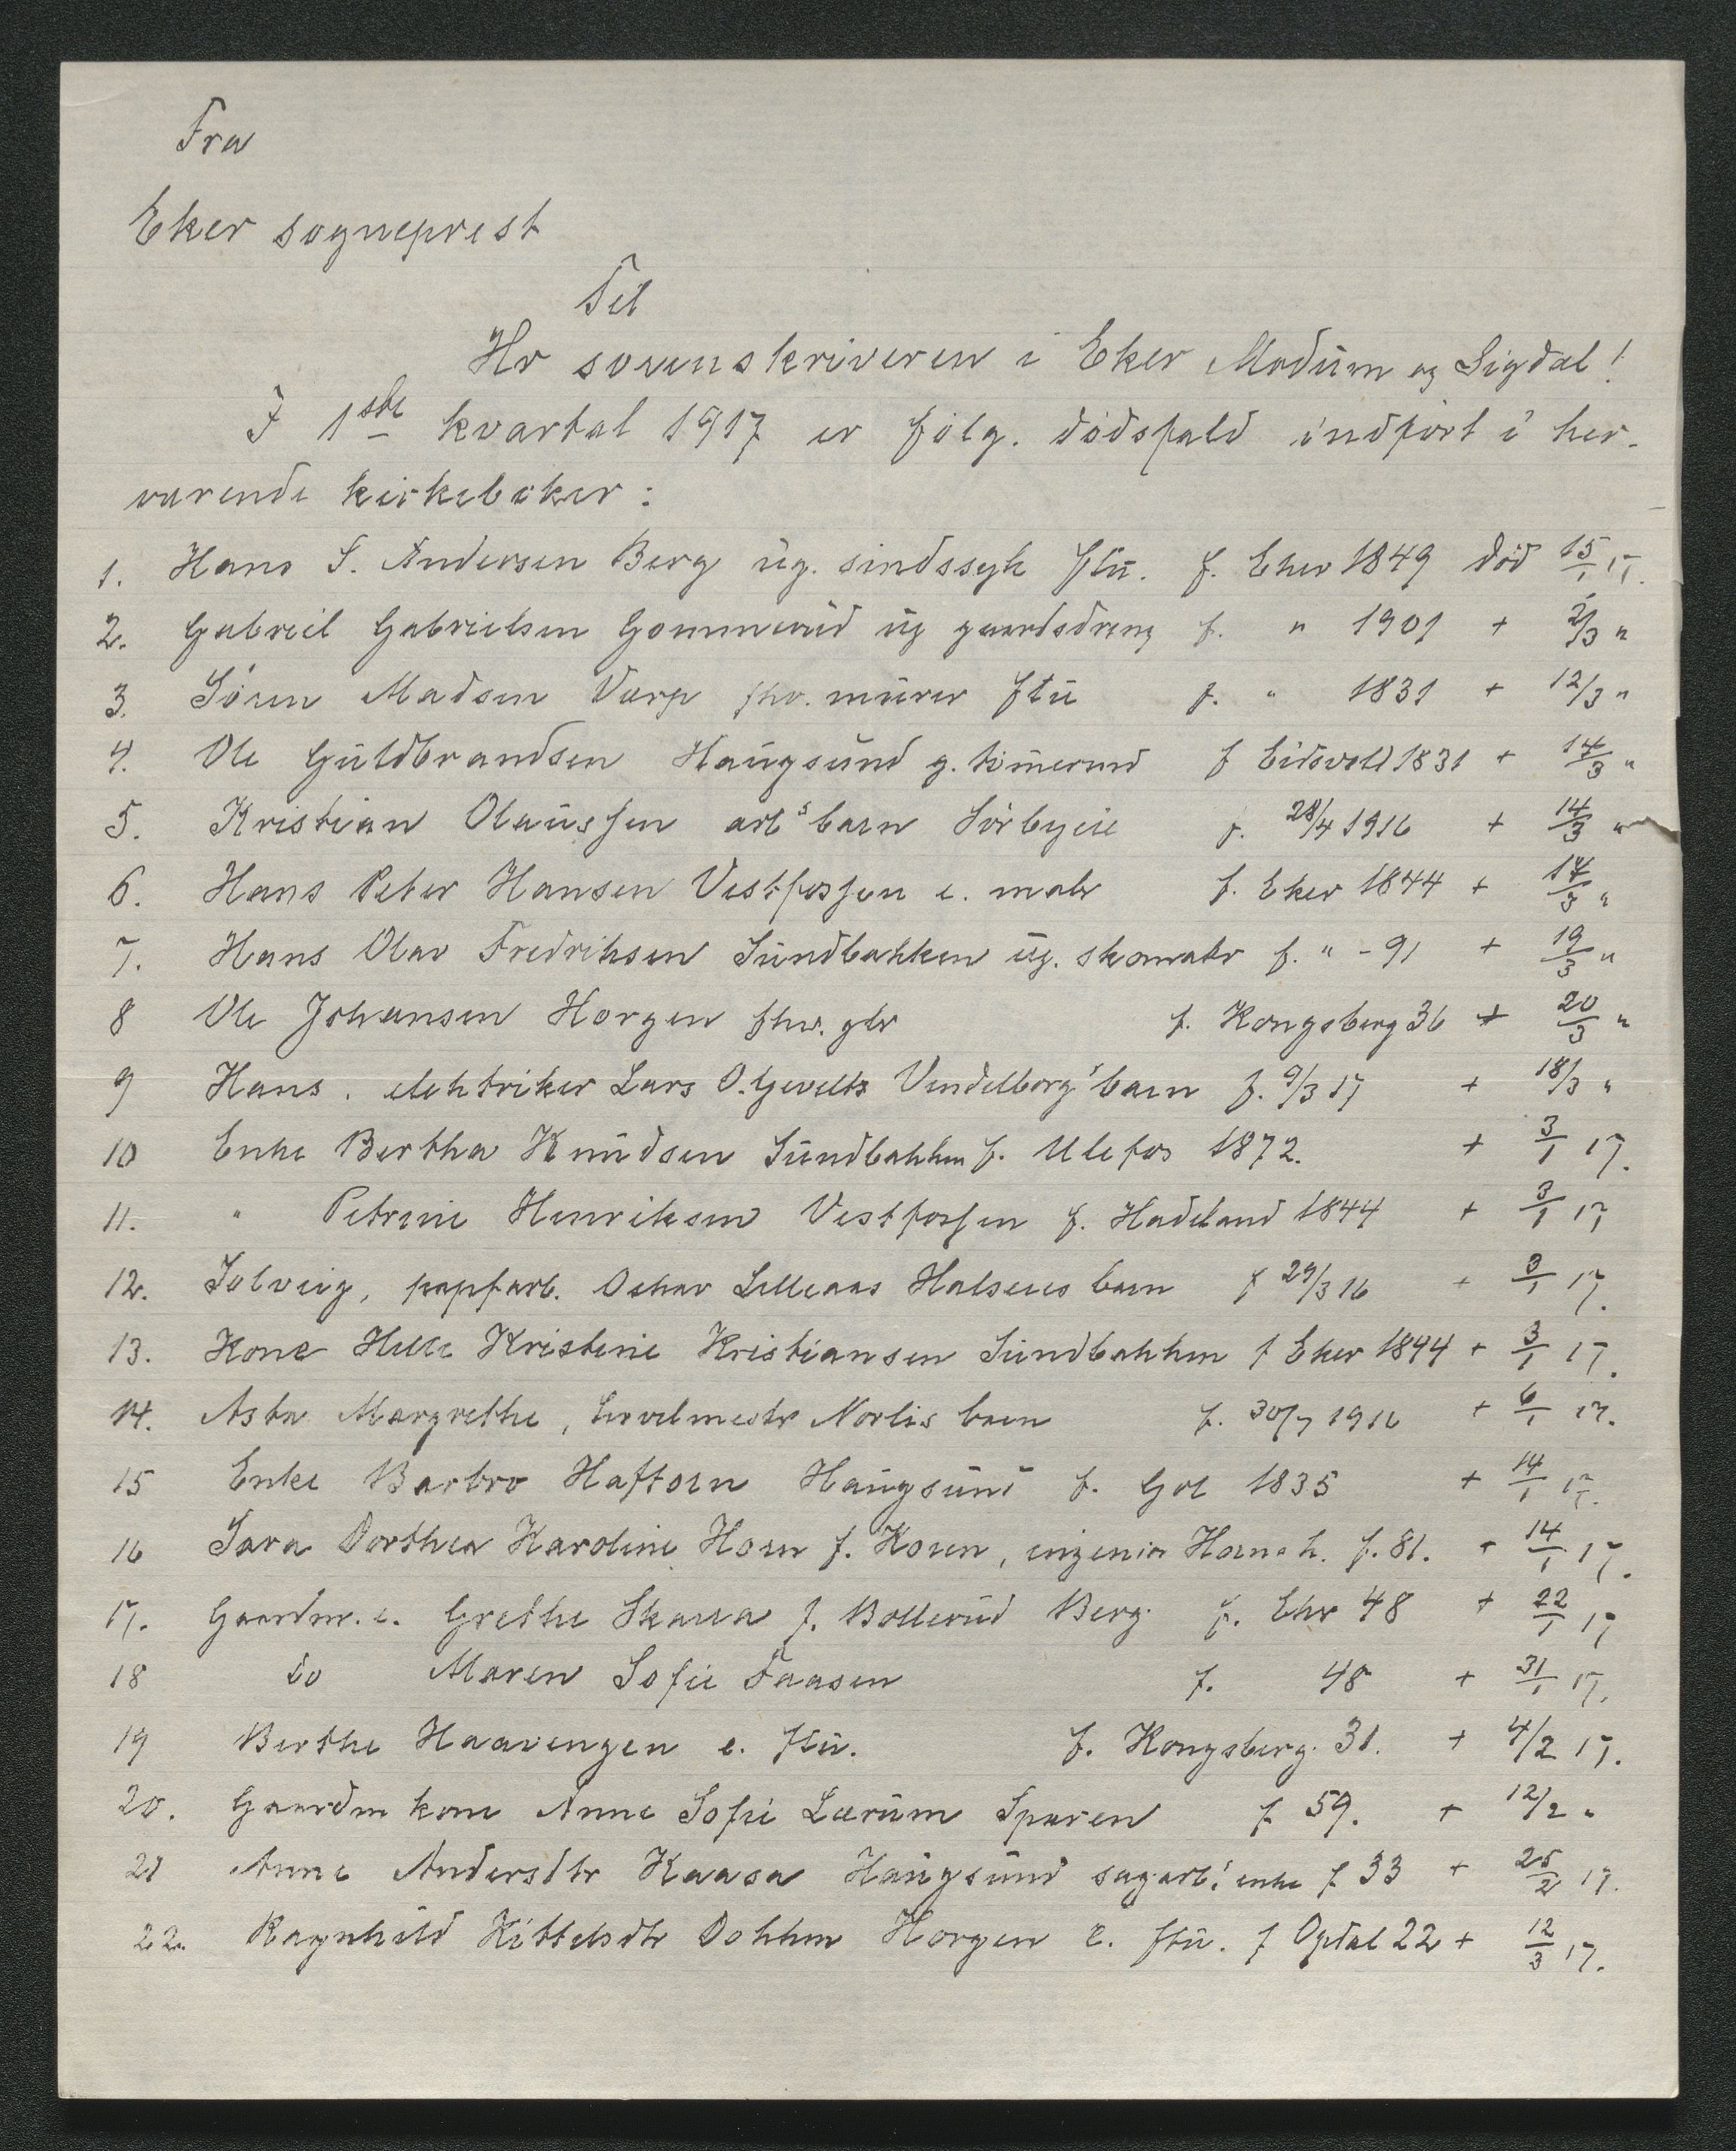 Fra
Eker sogneprest
Til
Hr sorenskriveren i Eker Modum og Sigdal!
I 1ste kvartal 1917 er følg. dødsfald indført i her-
værende kirkebøker:
1. Hans S. Andersen Berg ug. sindssyk ftu. f. Eker 1849 død 15/1 17.
2. Gabriel Gabrielsen Gommerud ug gaardsdreng f. " 1901 + 2/3 "
3. Søren Madsen Varp fhv. murer ftu f. " 1831 + 12/3 "
4. Ole Guldbrandsen Haugsund g. tømmermd f Eidsvold 1831 + 14/3 "
5. Kristian Olaussen arbs barn Sørbyeie f. 28/4 1916 + 14/3 "
6. Hans Peter Hansen Vestfossen e. maler f. Eker 1844 + 14/3 "
7. Hans Olav Fredriksen Sundbakken ug. skomaker f. " - 91 + 19/3 "
8 Ole Johansen Horgen fhv. gbr f. Kongsberg 36 + 20/3 "
9 Hans, elektriker Lars O. Gevelts Vendelborgs barn f. 9/3 17 + 18/3 "
10 Enke Bertha Knudsen Sundbakken f. Ulefos 1872. + 3/1 17.
11. " Petrine Henriksen Vestfossen f. Hadeland 1844 + 3/1 17
12. Solveig, papfarb. Oskar Lilleaas Halseies barn f 29/3 16 + 3/1 17.
13. Kone Helle Kristine Kristiansen Sundbakken f Eker 1844 + 3/1 17.
14. Asta Margrethe, hovelmester Norlis barn f. 30/7 1916 + 6/1 17.
15 Enke Barbro Haftorn Haugsund f. Gol 1835 + 14/1 17.
16 Sara Dorthea Karoline Horn f. Koren, ingeniør Horns h. f. 81. + 14/1 17.
17. Gaardm. e. Grethe Skarra f. Bollerud Berg f. Eker 48 + 22/1 17
18 do Maren Sofie Faasen f. 48 + 31/1 17.
19 Berthe Haavengen e. ftu. f. Kongsberg 31. + 4/2 17.
20. Gaardm kone Anne Sofie Lærum Sparen f 59. + 12/2 "
21 Anne Andersdtr Kaasa Haugsund sagarb.s enke f 33 + 25/2 17.
22. Ragnhild Kittelsdtr Dokken Horgen e. ftu. f Opdal 22 + 12/3 17.